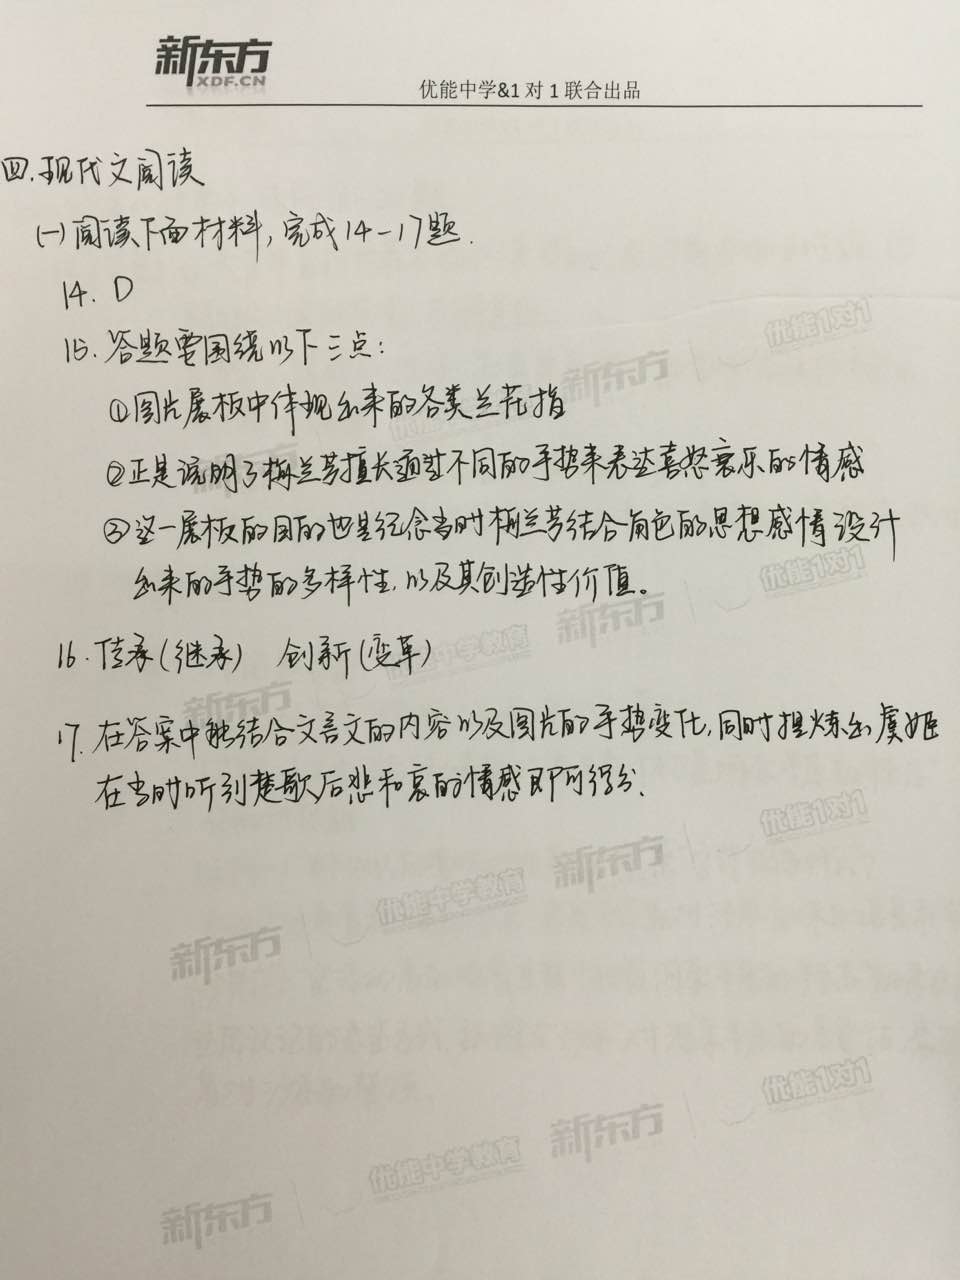 新东方
XDF.CN
优能中学&1 对 1 联合出品
四.现代文阅读
(一)阅读下面材料,完成14-17题.
14. D
15. 答题要围绕以下三点:
①图片展板中体现出来的各类兰花指
②正是说明了梅兰芳擅长通过不同的手势来表达喜怒哀乐的情感
③这一展板的目的也是纪念当时梅兰芳结合角色的思想感情设计
出来的手势的多样性,以及其创造性价值。
16. 传承(继承) 创新(变革)
17. 在答案中能结合文言文的内容以及图片的手势变化,同时提炼出虞姬
在当时听到楚歌后悲和哀的情感即可得分.
优能1对1
新东方
优能中学教育
新东方
优能1对1
新东方
优能中学教育
新东方
优能1对1
新东方
优能中学教育
新东方
优能1对1
新东方
优能中学教育
新东方